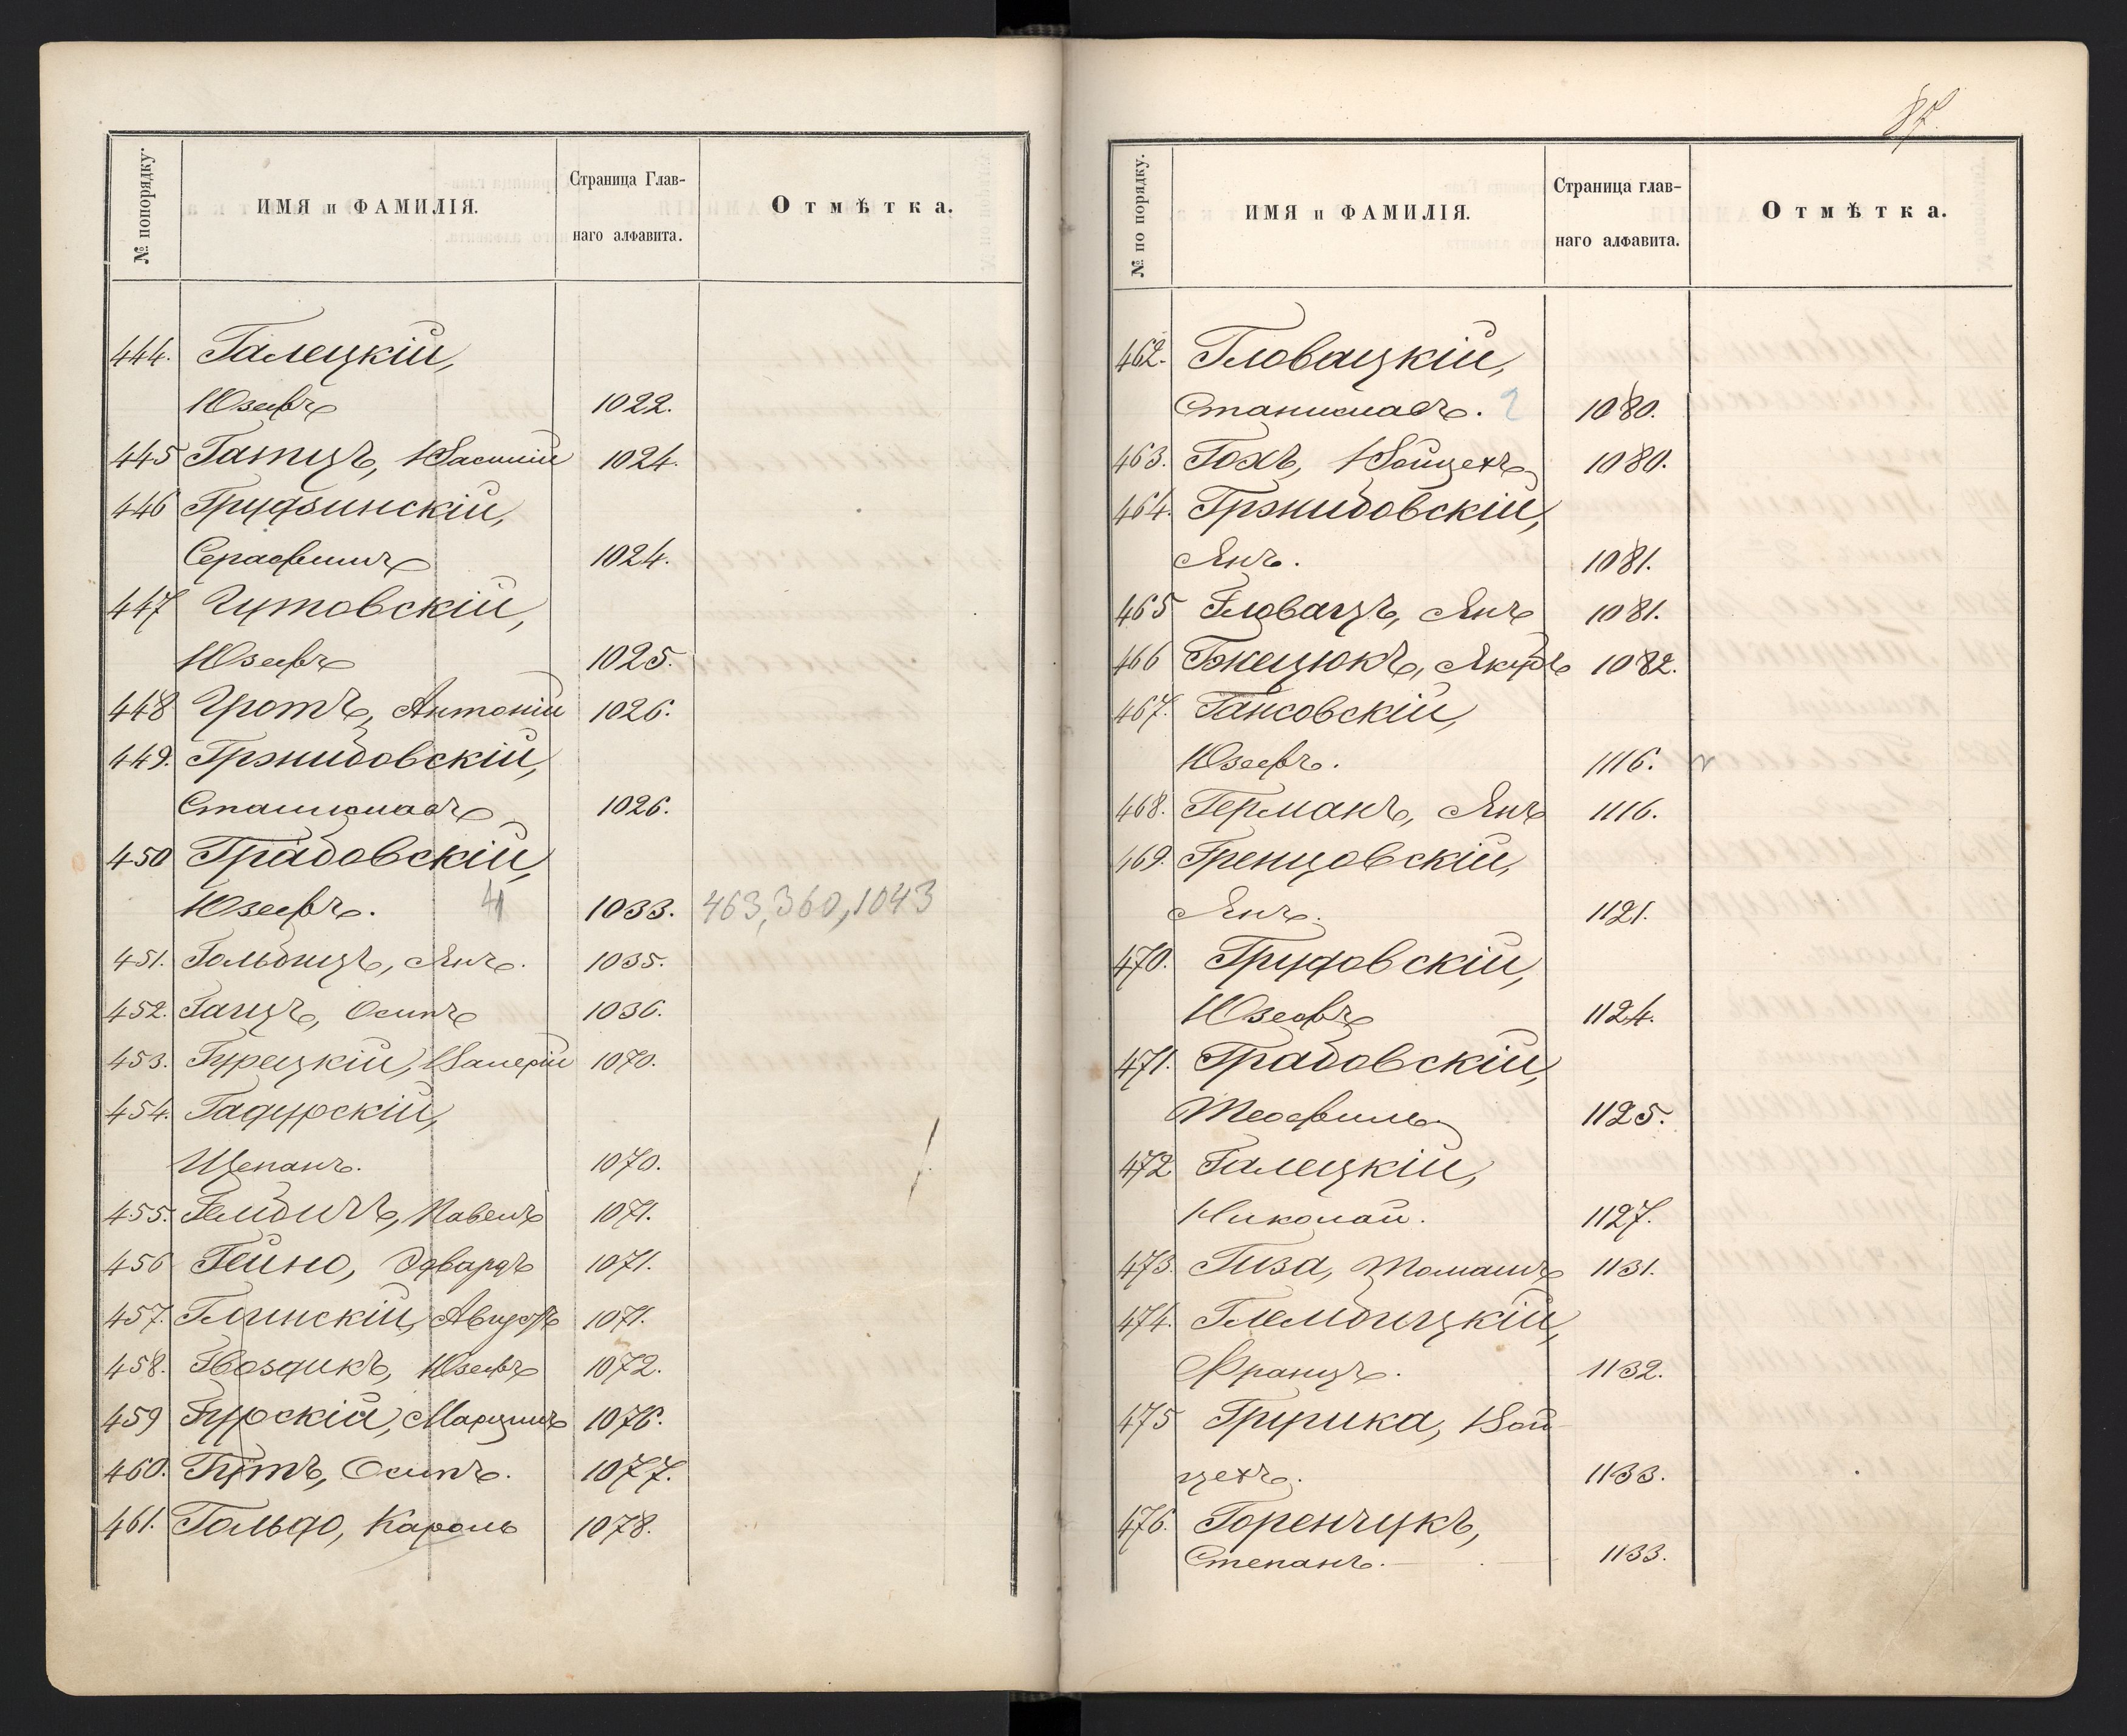 № попорядку.
ИМЯ и ФАМИЛІЯ.
Страница Глав-
наго алфавита.
Отмѣтка.
444. Галецкій,
Юзефъ 1022.
445 Гатцъ, Василій 1024.
446 Грудзинскій,
Серафимъ 1024.
447 Гутовскій,
Юзефъ 1025.
448 Гротъ, Антоній 1026.
449. Гржибовскій,
Станиславъ 1026.
450 Грабовскій,
Юзефъ. 4 1033. 463,360,1043
451. Гольбицъ, Янъ. 1035.
452. Ганцъ, Осипъ 1036.
453. Гурецкій, Валерій 1070.
454. Гадурскій,
Щепанъ. 1070.
455. Гембичъ, Павелъ 1071.
456 Гейно, Эдвардъ 1071.
457. Глинскій, Августъ 1071.
458. Гвоздикъ, Юзефъ 1072.
459 Гурскій, Марцинъ 1076.
460. Гутъ, Осипъ. 1077.
461. Гольдо, Кароль 1078.
87.
№ по порядку.
ИМЯ и ФАМИЛІЯ.
Страница глав-
наго алфавита.
Отмѣтка.
462. Гловацкій,
Станиславъ. 2 1080.
463. Гохъ, Войцехъ 1080.
464. Гржибовскій,
Янъ. 1081.
465 Гловацъ, Янъ 1081.
466 Гжецюкъ, Якубъ 1082.
467. Гансовскій,
Юзефъ. 1116.
468. Германъ, Янъ 1116.
469. Гренцовскій,
Янъ. 1121.
470. Грудовскій,
Юзефъ 1124.
471. Грабовскій,
Теофиль 1125.
472 Галецкій,
Николай. 1127.
473. Гиза, Томашъ 1131.
474. Глембицкій,
Францъ. 1132.
475 Грурика, Вой-
цехъ. 1133.
476. Горенчукъ,
Степанъ. 1133.